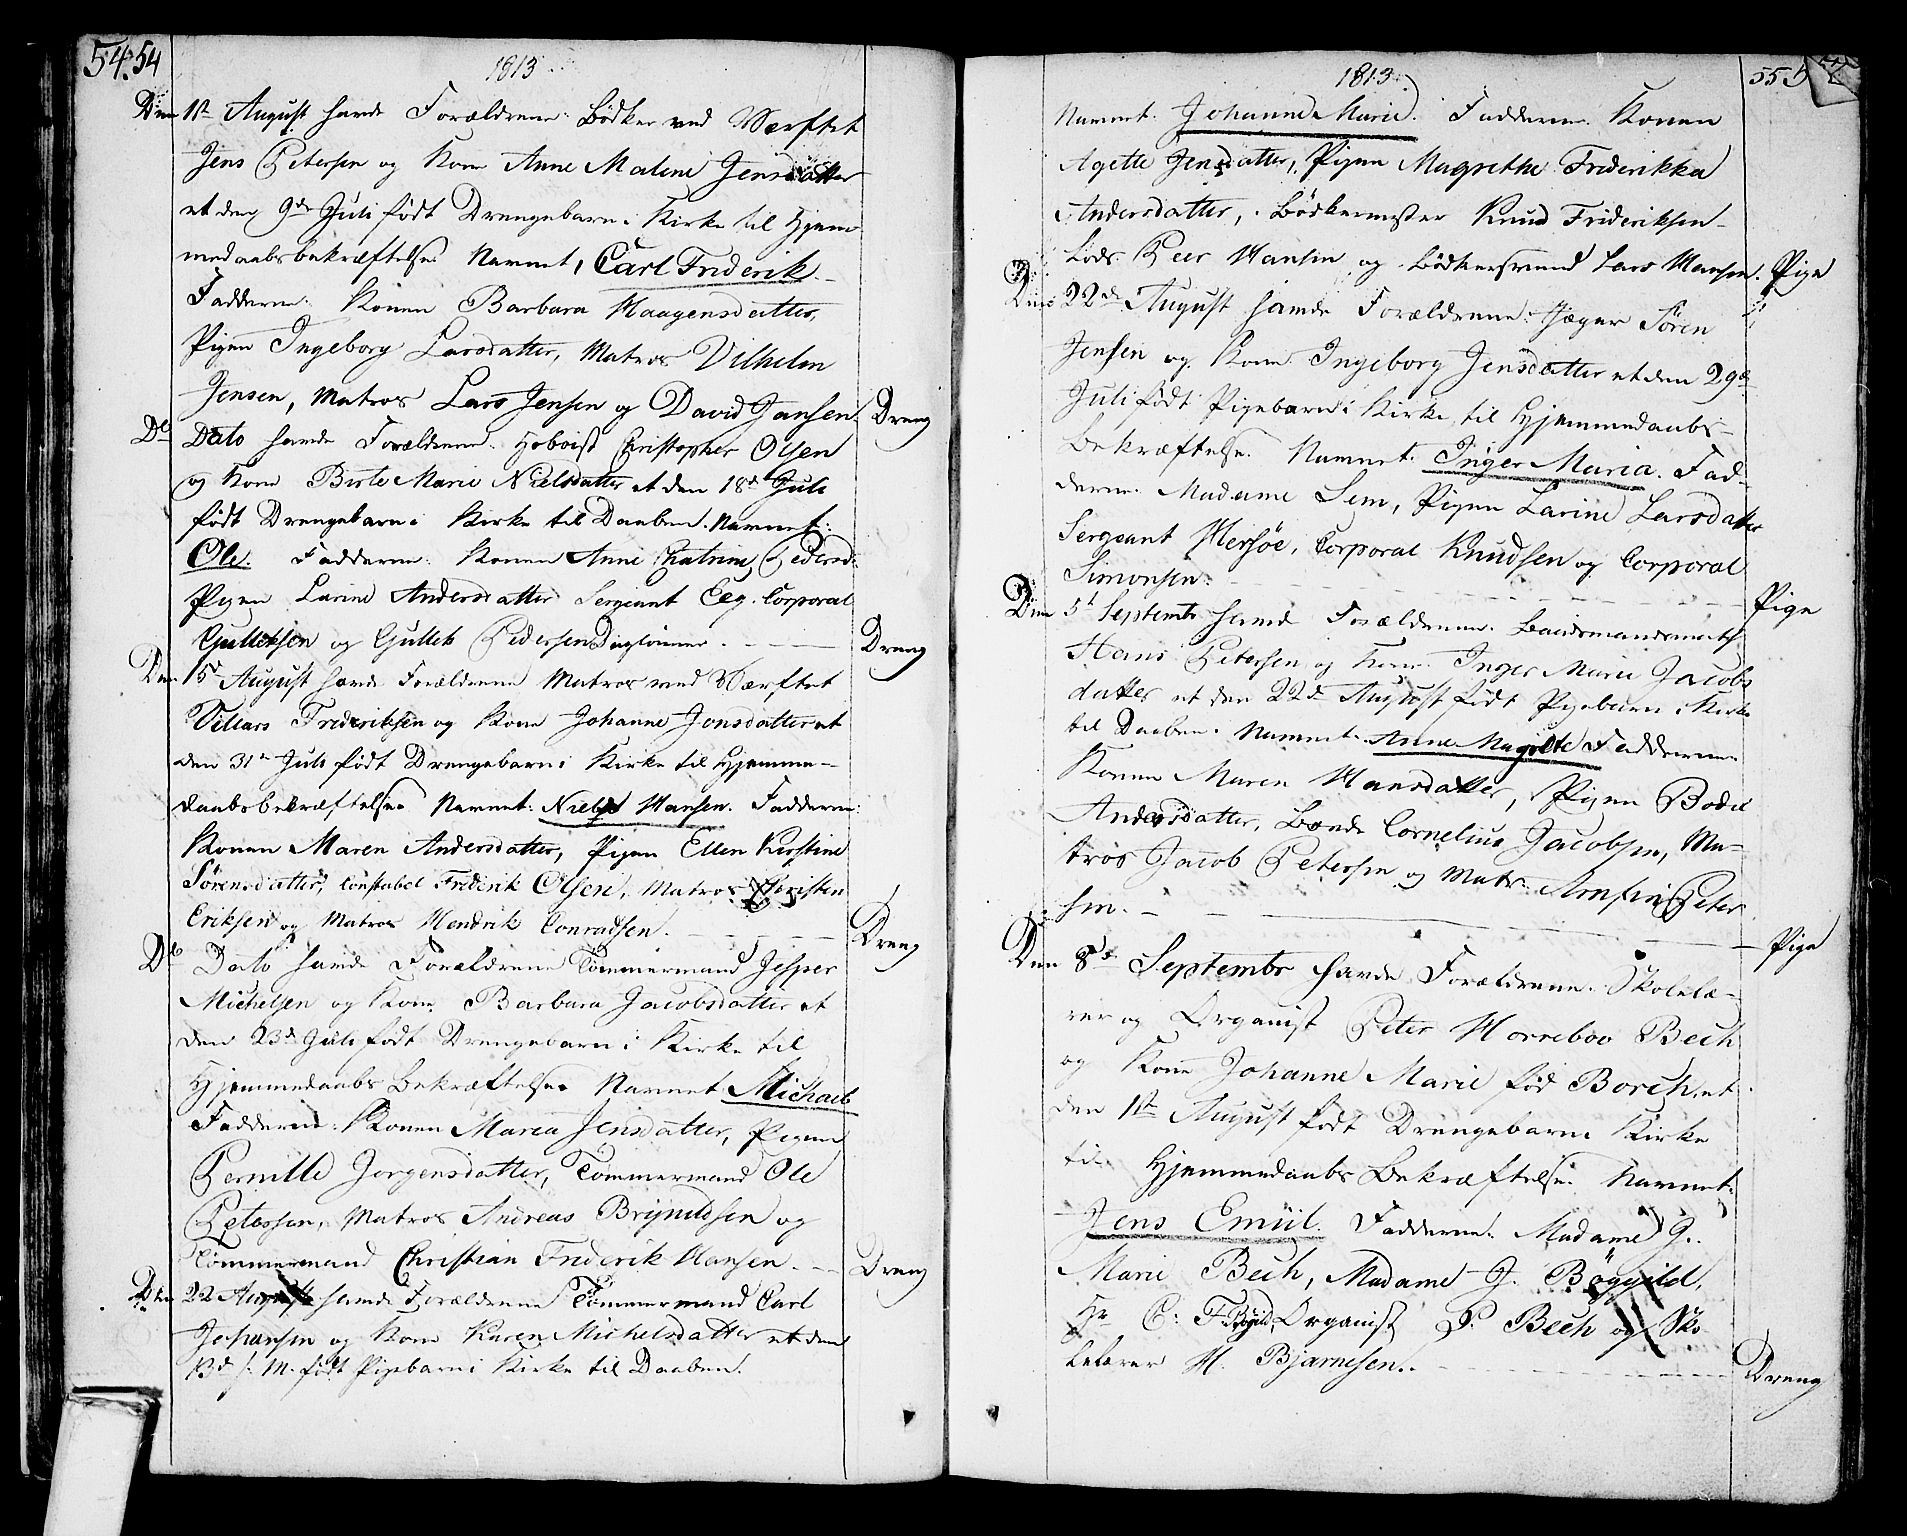 54. 54
1813
Den 1st August havde Forældrene: Bödker ved Værftet
Jens Petersen og Kone Anne Malene Jensdatter
et den 9de Juli födt Drengebarn i Kirke til Hjem-
medaabsbekræftelse Navnet, Carl Friderik.
Fadderne: Konen Barbara Haagensdatter,
Pigen Ingeborg Larsdatter, Matros Vilhelm
Jensen, Matros Lars Jensen og David Jansen. Dreng
Do Dato havde Forældrene Hoboist Christopher Olsen
og Kone Birte Marie Nielsdatter et den 18d Juli
födt Drengebarn i Kirke til Daaben. Navnet:
Ole. Fadderne: Konen Anne Chatrine Pedersd:
Pigen Larine Andersdatter Sergeant Eeg. Corporal
Gulliksen og Gullek Pedersen Daglönner. Dreng
Den 15d August havde Forældrene Matros ved Værftet
Villars Frideriksen og Kone Johanne Jonsdatter et
den 31te Juli födt Drengebarn i Kirke til Hjemme-
daabsbekræftelse Navnet: Niels Hansen. Fadderne:
Konen Maren Andersdatter, Pigen Ellen Kirstine
Sörensdatter, Constabel Friderik Olsen, Matros Christen
Eriksen og Matros Hendrik Conradsen. Dreng
Do Dato havde Forældrene Tömmermand Jesper
Michelsen og Kone Barbara Jacobsdatter et
den 23d Juli födt Drengebarn i Kirke til
Hjemmedaabs Bekræftelse Navnet Michael
Fadderne: Konen Maria Jensdatter, Pigen
Pernille Jorgensdatter, Tömmermand Ole
Petersen, Matros Andreas Brynildsen og
Tömmermand Christian Friderik Hansen. Dreng
Den 22 August havde Forældrene Tömmermand Carl
Johansen og Kone Karen Michelsdatter et den
13d s: M. födt Pigebarn i Kirke til Daaben.
1813.
55
Navnet. Johanne Marie. Fadderne. Konen
Agette Jensdatter, Pigen Magrethe Friderikka
Andersdatter, Bödkermester Knud Frideriksen
Lods Peer Hansen og Bödkersvend Lars Hansen. Pige
Den 22de August havde Forældrene: Jæger Sören
Jensen og Kone Ingeborg Jensdatter et den 29de
Juli födt Pigebarn i Kirke til Hjemmedaabs-
Bekræftelse. Navnet. Inger Maria. Fad-
derne. Madame Sem, Pigen Larine Larsdatter
Sergeant Hersöe, Corporal Knudsen og Corporal
Simonsen. Pige
Den 5t Septembr havde Forældrene. Baadsmandsmath
Hans Petersen og Kone Inger Marie Jacobs
datter et den 22de August födt Pigebarn i Kirke
til Daaben. Navnet. Anne Magrete Fadderne
Konen Maren Hansdatter, Pigen Bodil
Andersdatter, Bonde Cornelius Jacobsen, Ma-
tros Jacob Petersen og Matr: Arnfin Peter
sen. Pige
Den 8de Septembr havde Forældrene. Skolelæ-
rer og Organist Peter Horreboo Bech
og Kone Johanne Marie föd Borch, et
den 11te August födt Drengebarn i Kirke
til Hjemmedaabs Bekræftelse Navnet:
Jens Emiil. Fadderne: Madame G.
Marie Bech, Madame J. Böggild,
Hr C: F. Bögild, Organist P. Bech og Sko-
lelærer H. Bjarnesen. Dreng